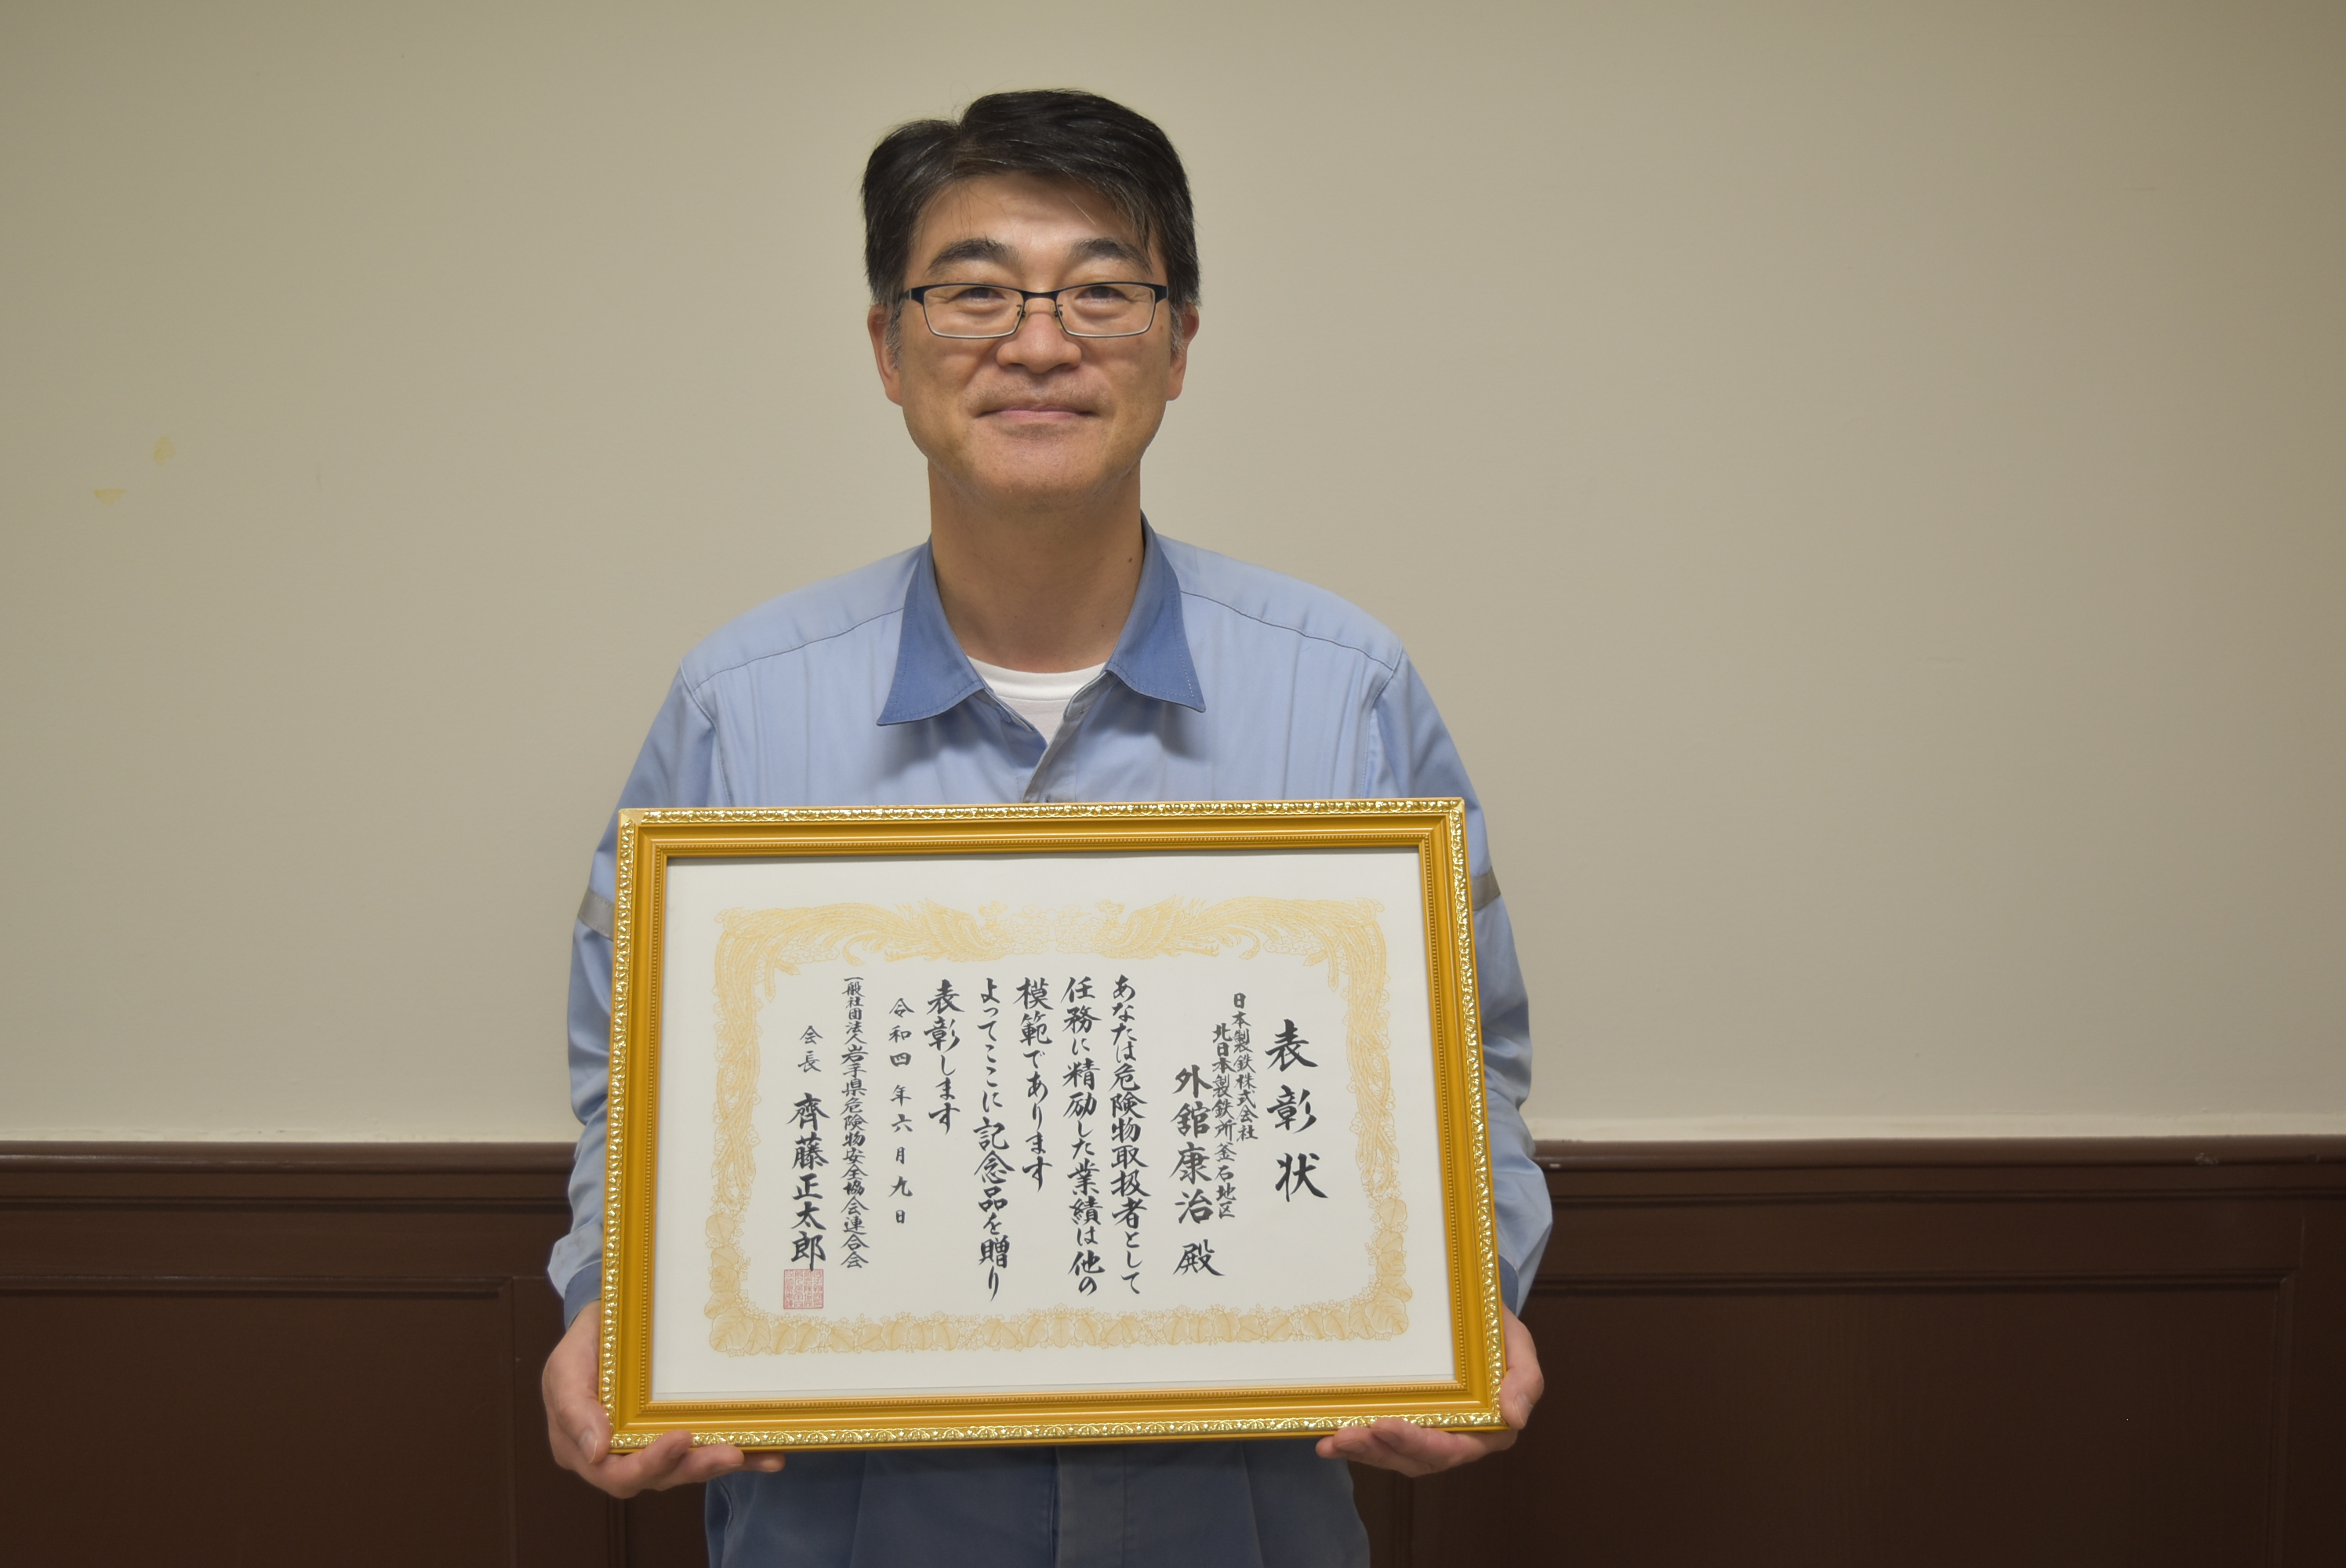 表彰状
日本製鉄株式会社
北日本製鉄所釜石地区
外舘康治殿
あなたは危険物取扱者として
任務に精励した業績は他の
模範であります
よってここに記念品を贈り
表彰します
令和四年六月九日
一般社団法人岩手県危険物安全協会連合会
会長 齊藤正太郎